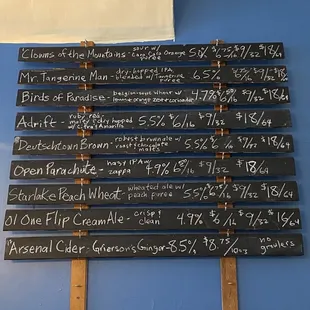 "Clowns of the Mountains" sour w/ Cara Cara Orange puree 5.0% $6.75/16 $9/32 $18/64
Mr. Tangerine Man - dry-hopped IPA blended w/ Tangerine puree 6.5% $9/32 $18/64
Birds of Paradise - belgian-esque wheat w/ orange zest + coriander 4.7% $9/32 $18/64
Adrift - ruby red, malty & dry hopped w/ Citra & Amarillo 5.5% $6/16 $9/32 $18/64
"Deutschtown Brown" - robust brown ale w/ roast & chocolate malts 5.5% $6/16 $9/32 $18/64
Open Parachute - hazy IPA w/ zappa 4.9% $6/16 $9/32 $18/64
Starlake Peach Wheat - wheated ale w/ peach puree 5.5% $9/32 $18/64
Ol One Flip Cream Ale - crisp & clean 4.9% $6/16 $9/32 $16/64
"Arsenal Cider - Grierson's Ginger - 8.5% $8.75/10oz no growlers